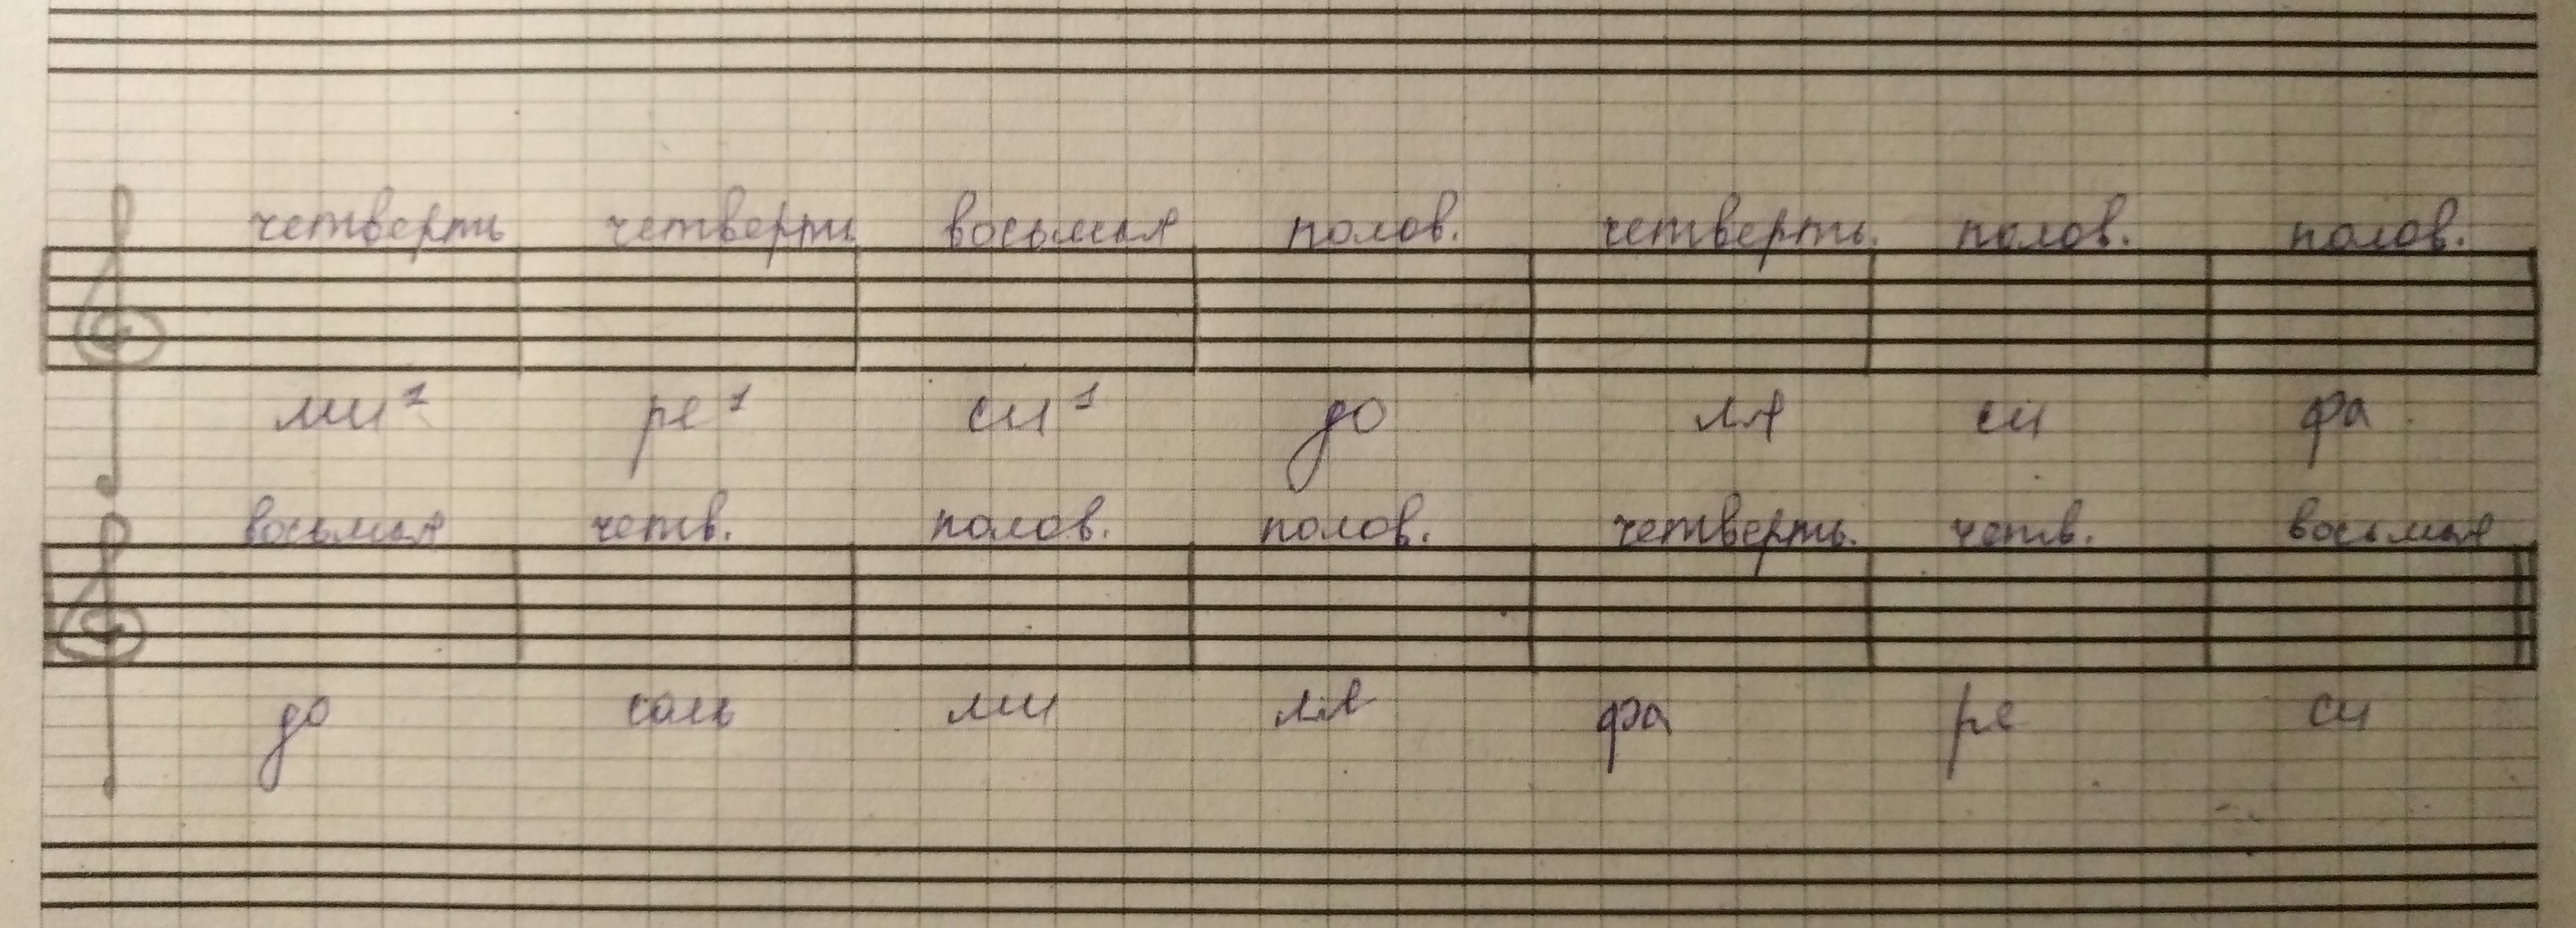 четверть четверть восьмая полов. четверть. полов. полов.
ми¹ ре¹ си¹ до ля си фа
восьмая четв. полов. полов. четверть. четв. восьмая
до соль ми ля фа ре си